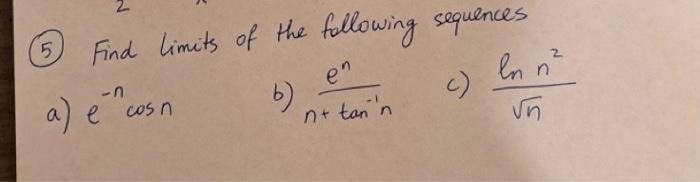 2
⑤ Find limits of the following sequences
a) e⁻ⁿ cos n b) eⁿ / (n + tan⁻¹n) c) ln n² / √n